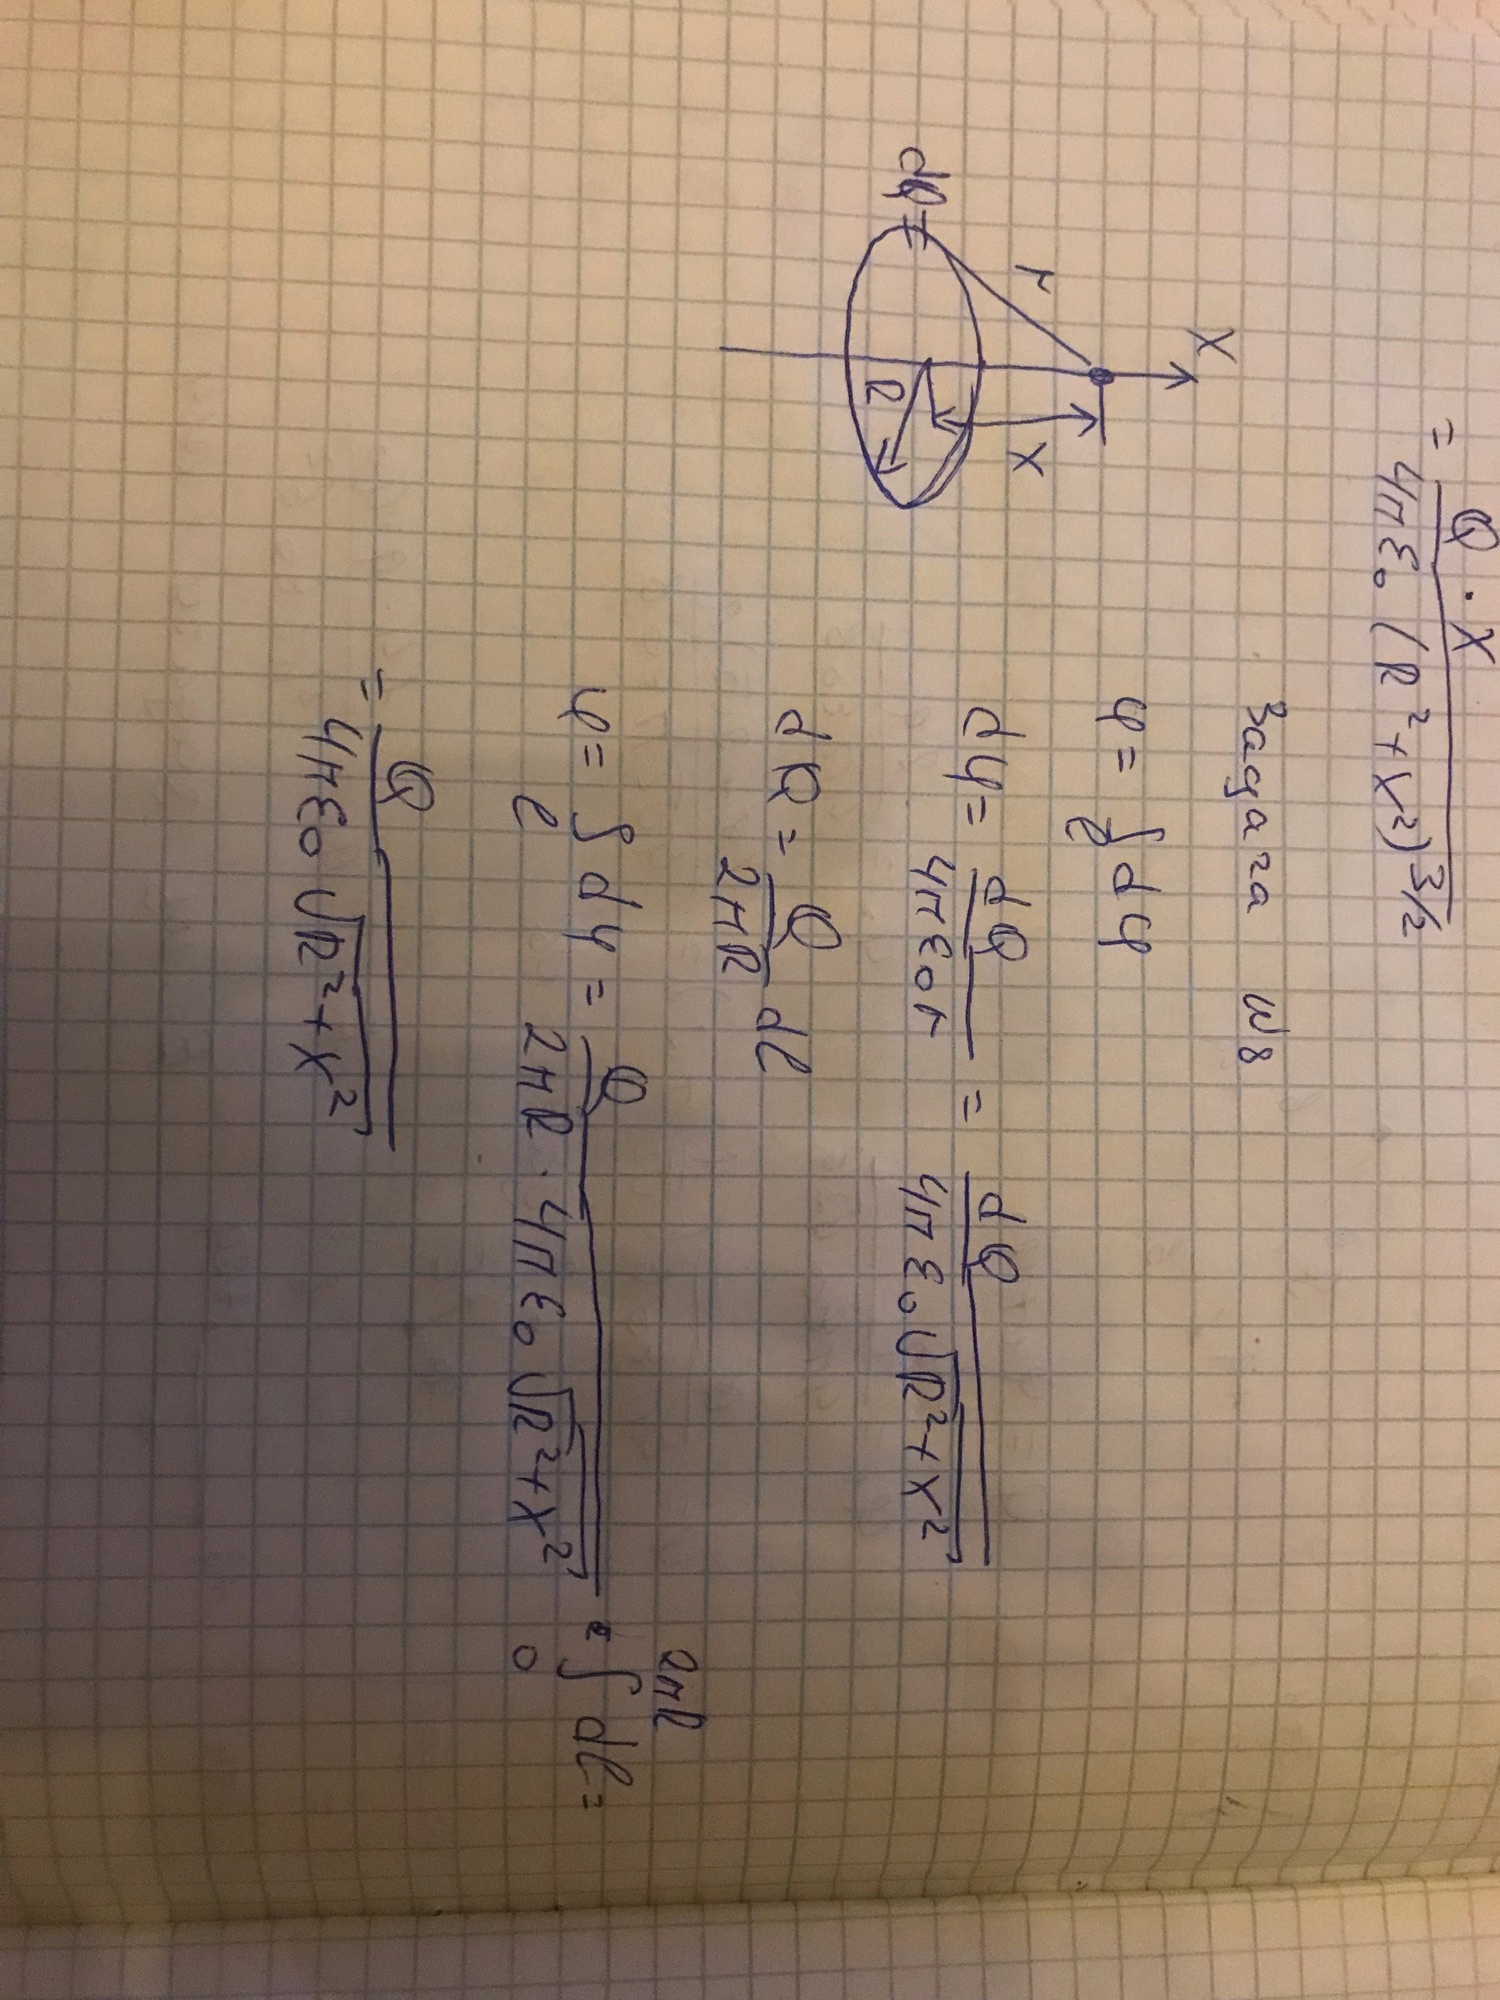 = Q · X / 4πε₀ (R² + X²)^3/2
Задача №8
X
φ = ∫_l dφ
r
X
dφ = dQ / 4πε₀r = dQ / 4πε₀√(R² + X²)
dQ
R
dQ = Q / 2πR dl
φ = ∫_l dφ = Q / 2πR · 4πε₀√(R² + X²) · ∫_0^2πR dl =
= Q / 4πε₀√(R² + X²)